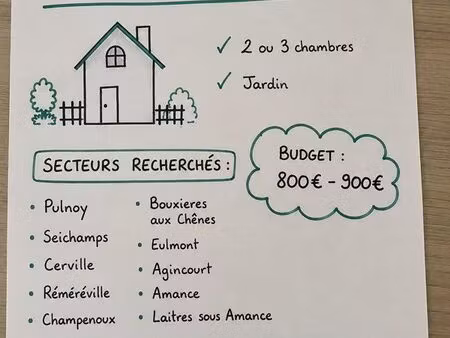 ✓ 2 ou 3 chambres
✓ Jardin
SECTEURS RECHERCHÉS :
• Pulnoy
• Seichamps
• Cerville
• Réméréville
• Champenoux
• Bouxieres
aux Chênes
• Eulmont
• Agincourt
• Amance
• Laitres sous Amance
BUDGET :
800€ - 900€